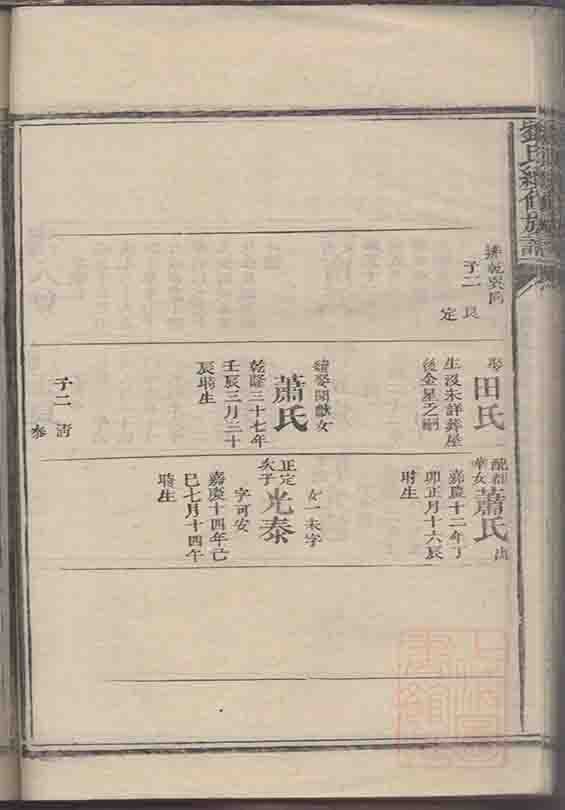 劉氏續修族譜
子二 良
定
娶
田氏
生沒未詳葬屋
後金星之嗣
繼娶開獻女
蕭氏
乾隆三十七年
壬辰三月二十
辰時生
子二 清
泰
蕭氏
嘉慶十二年丁
卯正月十六辰
時生
女一未字
正定次子
光泰
字可安
嘉慶十四年己
巳七月十四午
時生